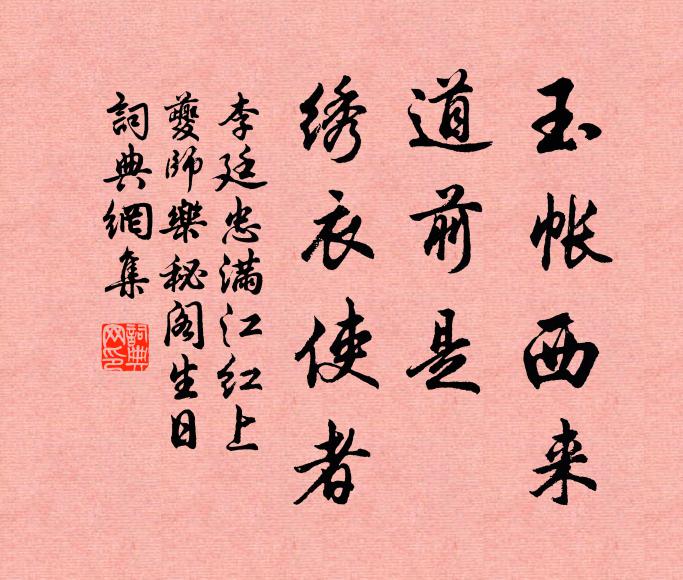 玉帐西来
道前是
绣衣使者
李廷忠满江红上
夔师樂秘阁生日
詞典網集
詞典网印